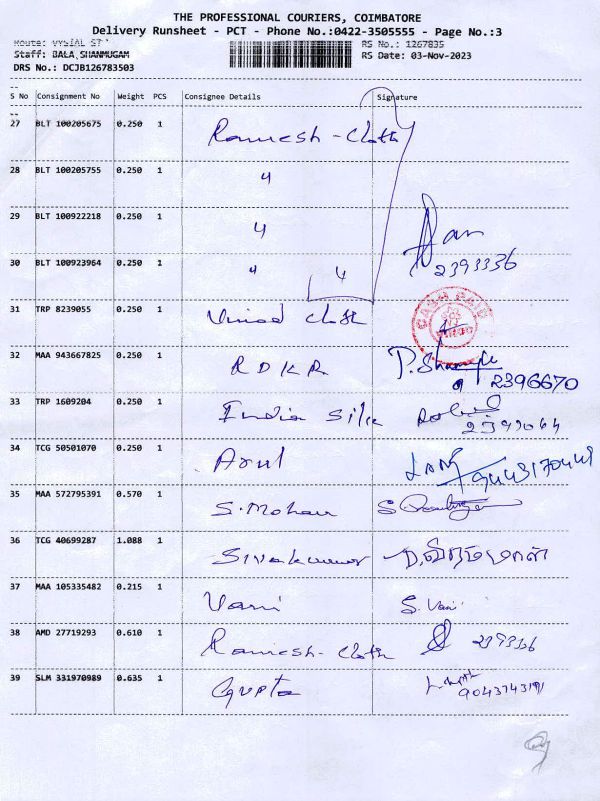 THE PROFESSIONAL COURIERS, COIMBATORE
Delivery Runsheet - PCT - Phone No.:0422-3505555 - Page No.:3
Route: VYSIAL ST
RS No.: 1267835
Staff: BALA SHANMUGAM
RS Date: 03-Nov-2023
DRS No.: DCJB126783503
S No Consignment No Weight PCS Consignee Details Signature
27 BLT 100205675 0.250 1 Ramesh - Cloth
28 BLT 100205755 0.250 1 4
29 BLT 100922218 0.250 1 4
30 BLT 100923964 0.250 1 4 4 2393336
31 TRP 8239055 0.250 1 Vinod Cloth CASH PAID
32 MAA 943667825 0.250 1 R D K R 2396670
33 TRP 1609204 0.250 1 India Silk
34 TCG 50501070 0.250 1 Arul
35 MAA 572795391 0.570 1 S. Mohan
36 TCG 40699287 1.088 1 Sivakumar
37 MAA 105335482 0.215 1 Vani S. Vani
38 AMD 27719293 0.610 1 Ramesh - Cloth
39 SLM 331970989 0.635 1 Gupta